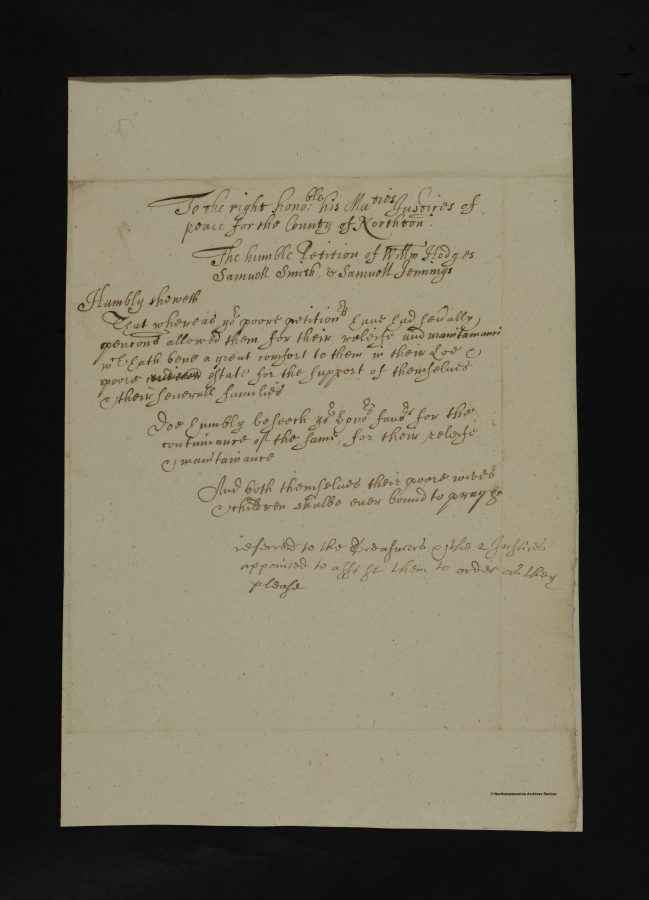 To the right hono:ble his Maties Justices of
peace for the County of Northton.
The humble Petition of Willm Hodges
Samuell Smith, & Samuell Jennings
Humbly sheweth
That whereas yor poore petitionrs have had sevrally
pencons allowed them for their releife and maintainance
wch hath bene a great comfort to them in their Loe &
poore estate for the support of themselves
& their severall families
Doe humbly beseech yor honrs favor for the
continuance of the same, for their releife
& maintainance
And both themselves their poore wives
& children shalbe ever bound to pray &c
referred to the Treasurers & the 2 Justices
appointed to assist them to order as they
please
© Northamptonshire Archives Service